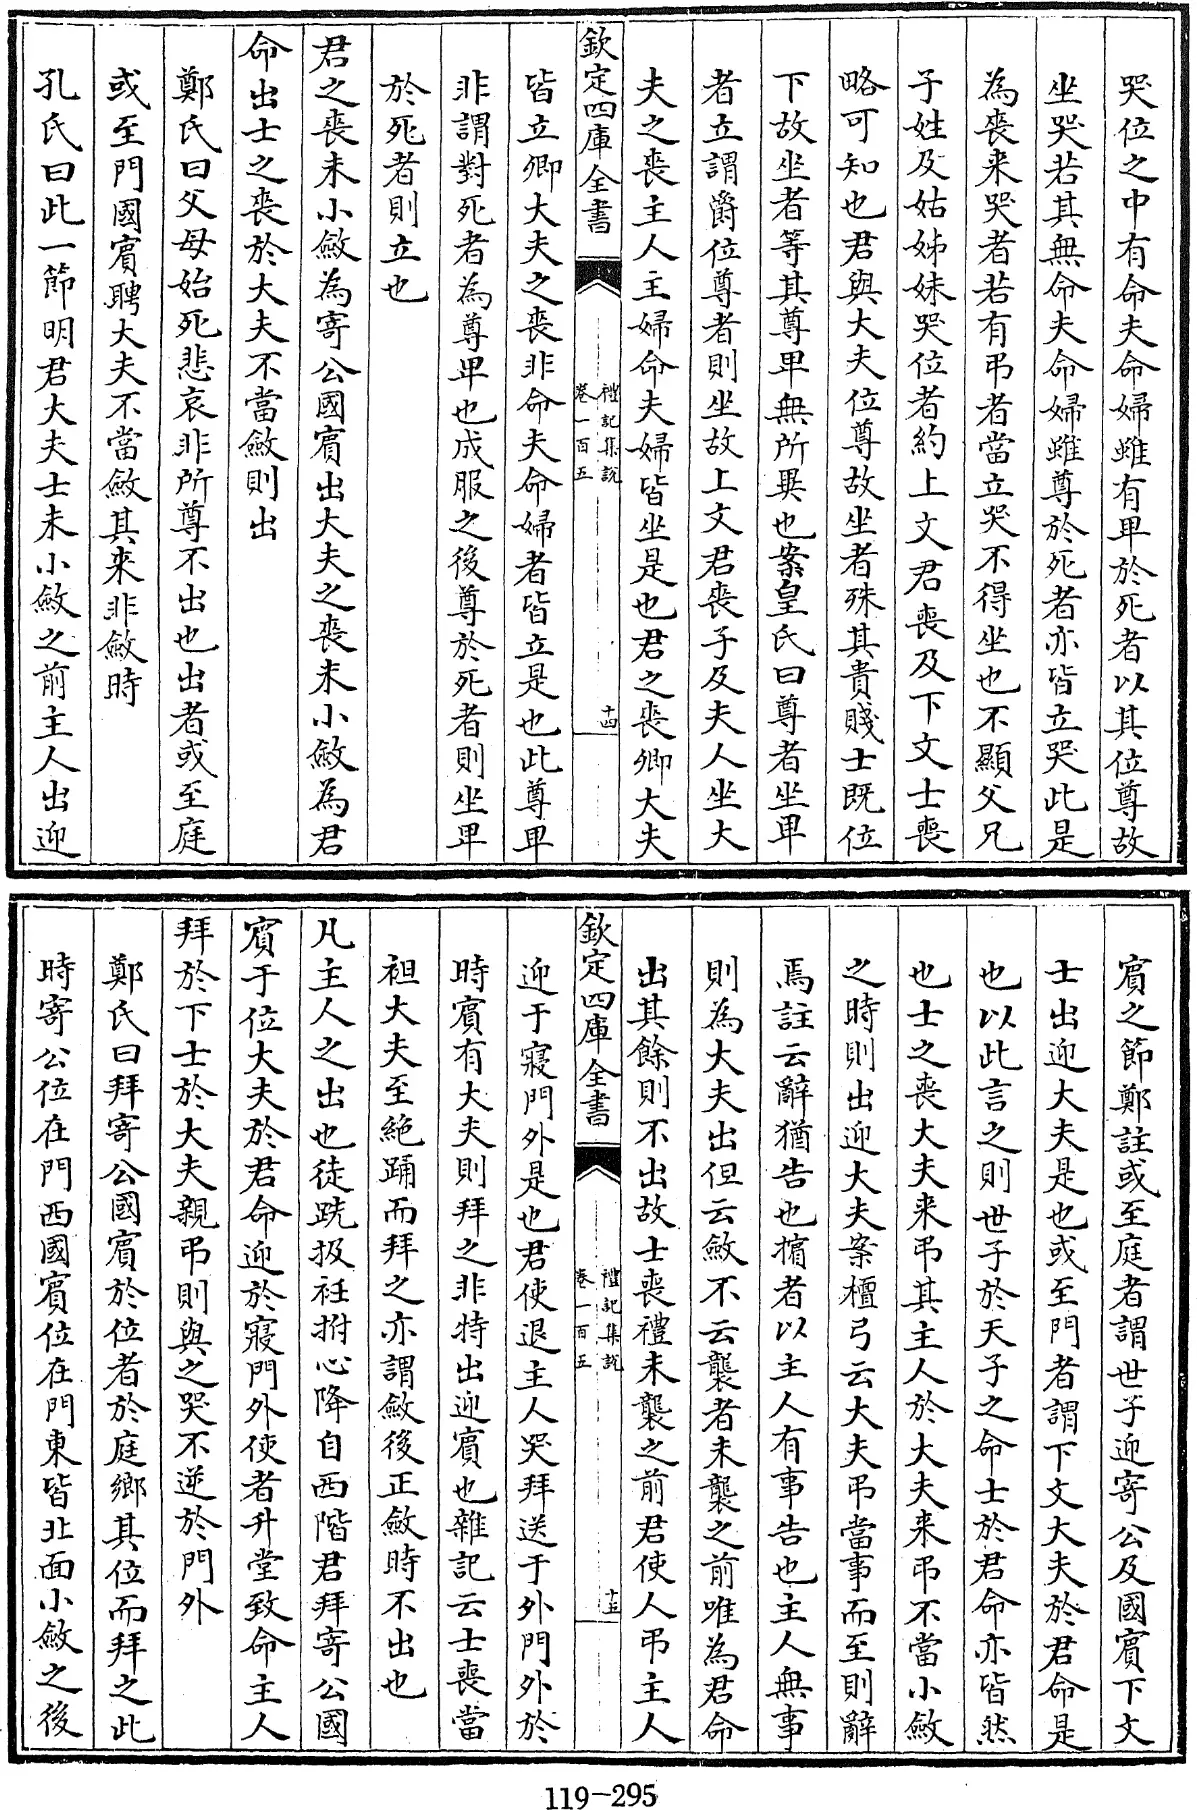 哭位之中有命夫命婦雖有卑於死者以其位尊故
坐哭若其無命夫命婦雖尊於死者亦皆立哭此是
為喪来哭者若有弔者當立哭不得坐也不顯父兄
子姓及姑姊妹哭位者約上文君喪及下文士喪
略可知也君與大夫位尊故坐者殊其貴賤士既位
下故坐者等其尊卑無所異也案皇氏曰尊者坐卑
者立謂爵位尊者則坐故上文君喪子及夫人坐大
夫之喪主人主婦命夫婦皆坐是也君之喪卿大夫
欽定四庫全書
禮記集說
卷一百五
十四
皆立卿大夫之喪非命夫命婦者皆立是也此尊卑
非謂對死者為尊卑也成服之後尊於死者則坐卑
於死者則立也
君之喪未小斂為寄公國賓出大夫之喪未小斂為君
命出士之喪於大夫不當斂則出
鄭氏曰父母始死悲哀非所尊不出也出者或至庭
或至門國賓聘大夫不當斂其来非斂時
孔氏曰此一節明君大夫士未小斂之前主人出迎
賓之節鄭註或至庭者謂世子迎寄公及國賓下文
士出迎大夫是也或至門者謂下文大夫於君命是
也以此言之則世子於天子之命士於君命亦皆然
也士之喪大夫来弔其主人於大夫来弔不當小斂
之時則出迎大夫案檀弓云大夫弔當事而至則辭
焉註云辭猶告也擯者以主人有事告也主人無事
則為大夫出但云斂不云襲者未襲之前唯為君命
出其餘則不出故士喪禮未襲之前君使人弔主人
欽定四庫全書
禮記集說
卷一百五
十五
迎于寢門外是也君使退主人哭拜送于外門外於
時賓有大夫則拜之非特出迎賓也雜記云士喪當
袒大夫至絶踊而拜之亦謂斂後正斂時不出也
凡主人之出也徒跣扱衽拊心降自西階君拜寄公國
賓于位大夫於君命迎於寢門外使者升堂致命主人
拜於下士於大夫親弔則與之哭不逆於門外
鄭氏曰拜寄公國賓於位者於庭鄉其位而拜之此
時寄公位在門西國賓位在門東皆北面小斂之後
119-295